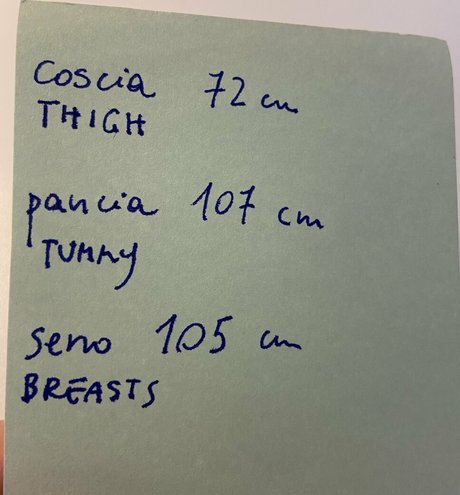 Coscia 72 cm
THIGH
pancia 107 cm
TUMMY
seno 105 cm
BREASTS